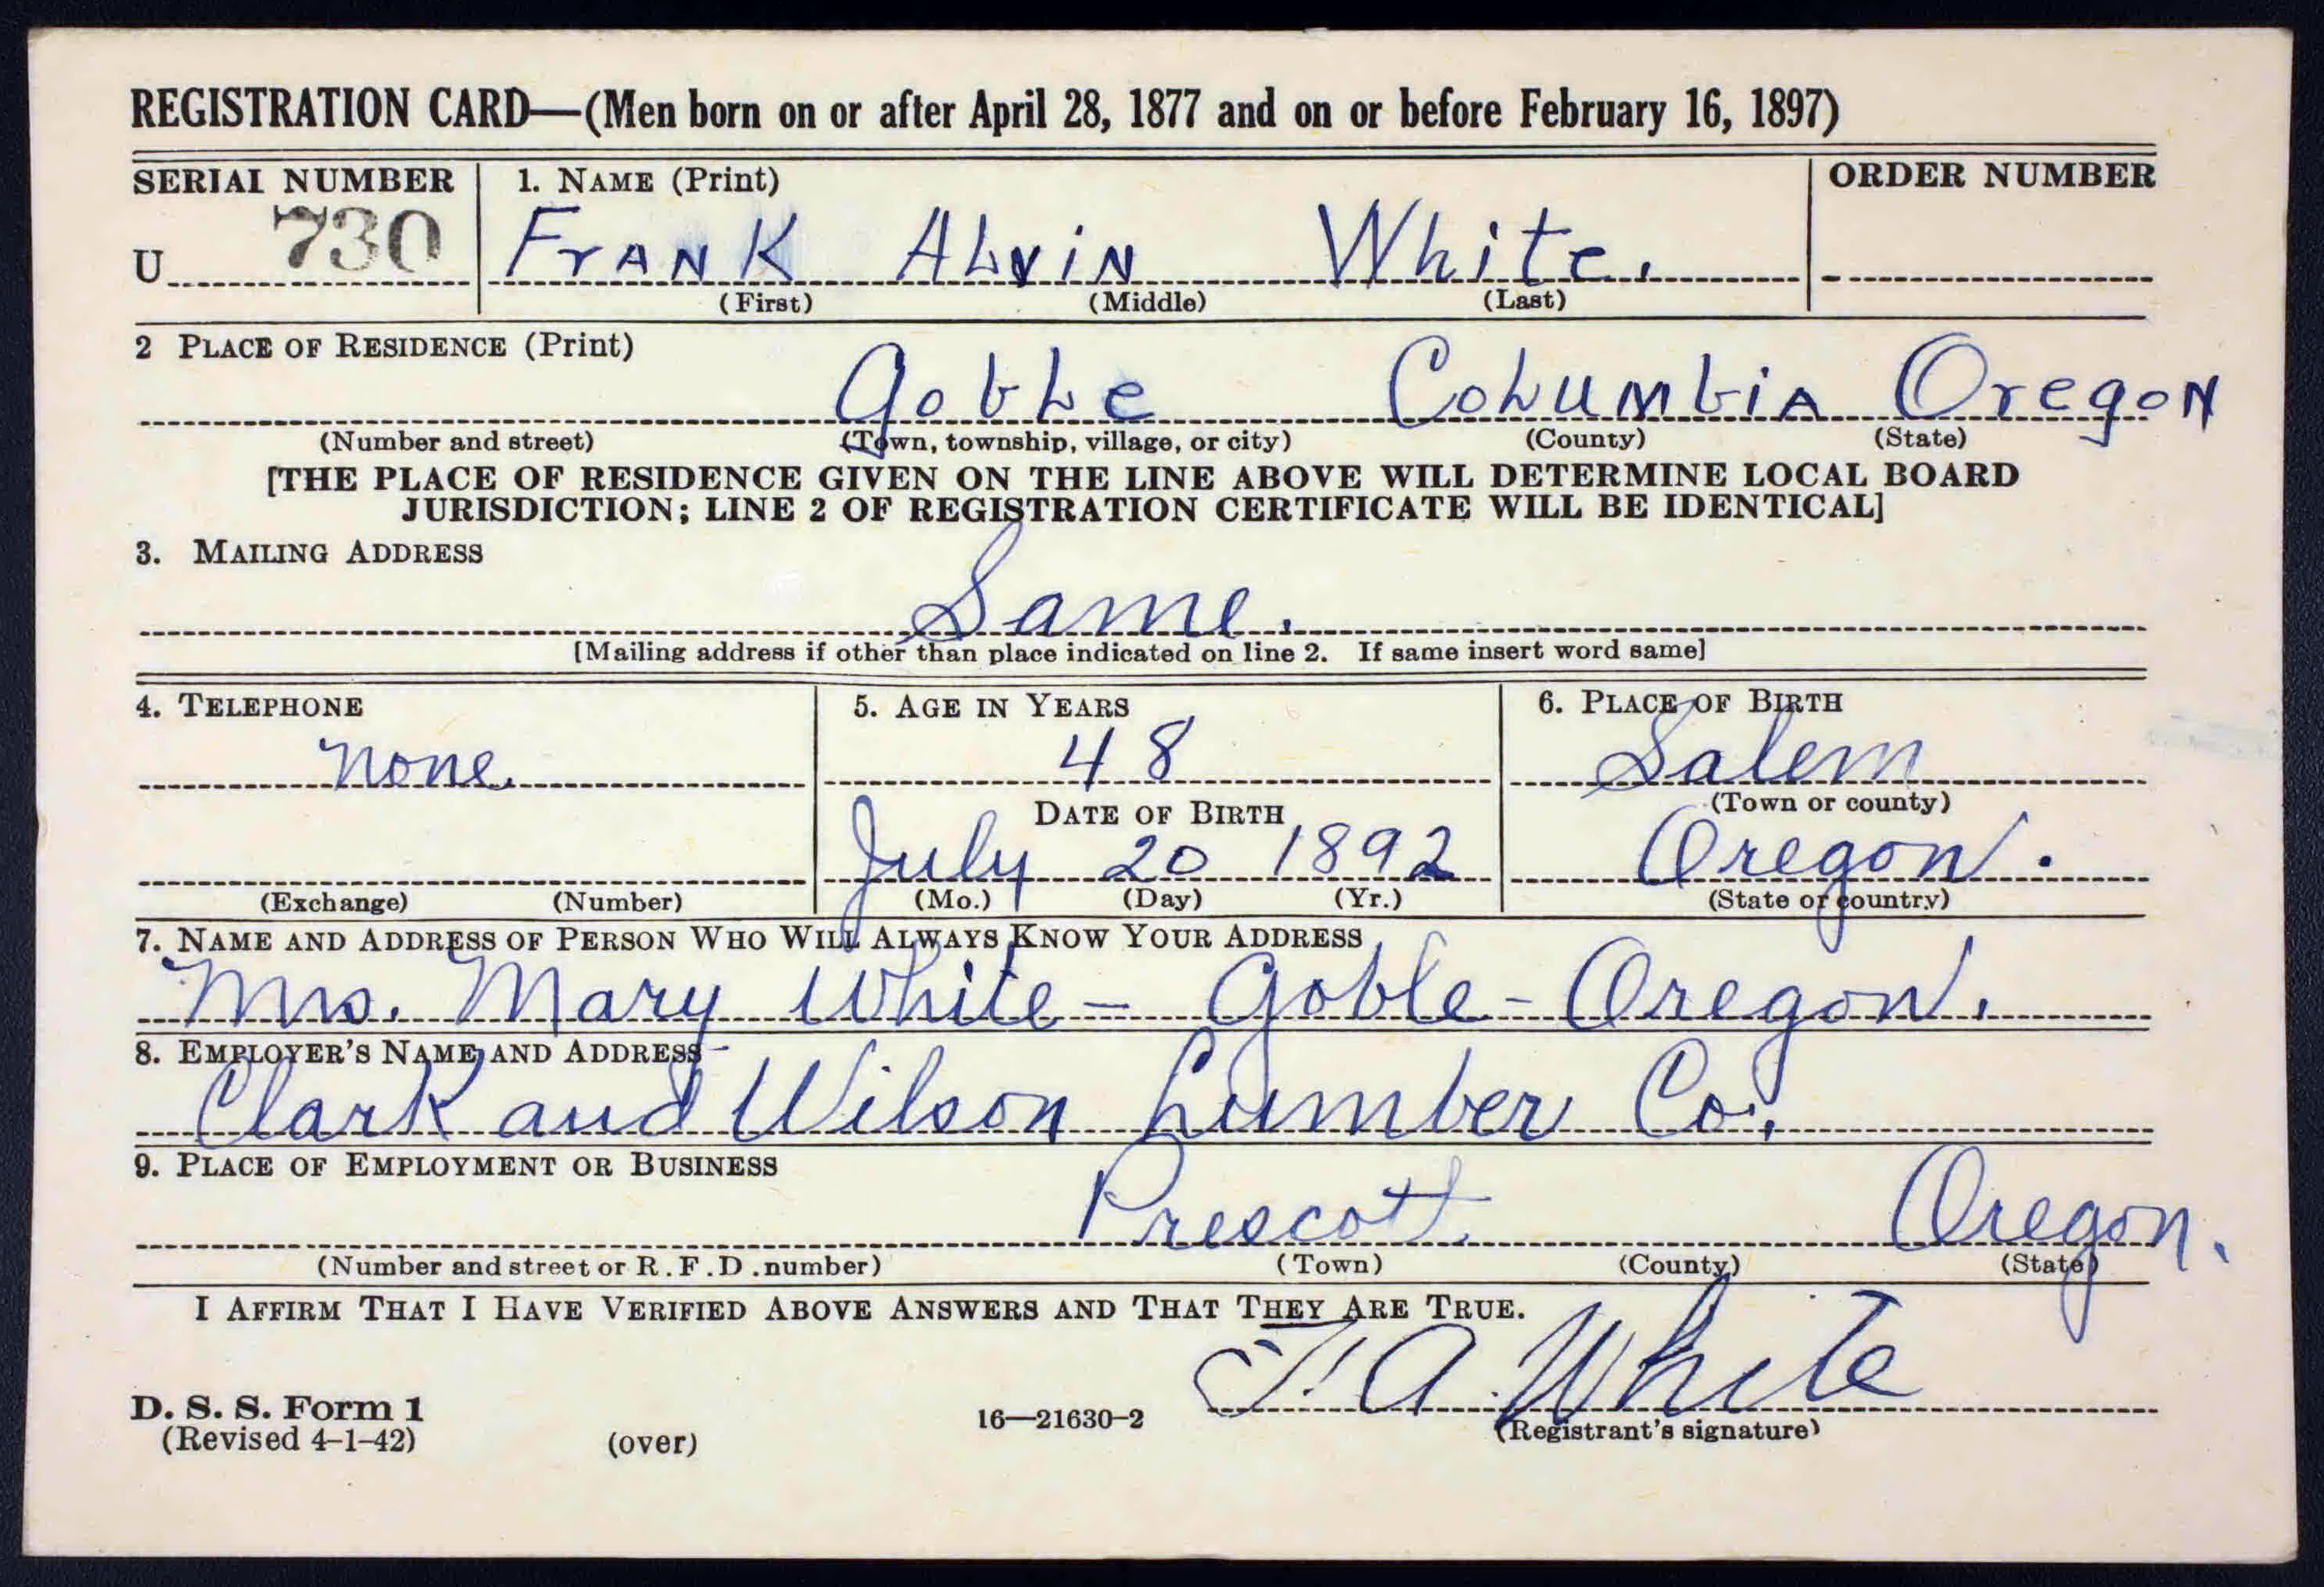 REGISTRATION CARD—(Men born on or after April 28, 1877 and on or before February 16, 1897)
SERIAL NUMBER 1. NAME (Print) ORDER NUMBER
U 730 FrANK ALviN White.
(First) (Middle) (Last)
2 PLACE OF RESIDENCE (Print)
Goble Columbia Oregon
(Number and street) (Town, township, village, or city) (County) (State)
[THE PLACE OF RESIDENCE GIVEN ON THE LINE ABOVE WILL DETERMINE LOCAL BOARD
JURISDICTION; LINE 2 OF REGISTRATION CERTIFICATE WILL BE IDENTICAL]
3. MAILING ADDRESS
Same.
[Mailing address if other than place indicated on line 2. If same insert word same]
4. TELEPHONE 5. AGE IN YEARS 6. PLACE OF BIRTH
none. 48 Salem
DATE OF BIRTH (Town or county)
July 20 1892 Oregon.
(Exchange) (Number) (Mo.) (Day) (Yr.) (State or country)
7. NAME AND ADDRESS OF PERSON WHO WILL ALWAYS KNOW YOUR ADDRESS
Mrs. Mary White - Goble - Oregon.
8. EMPLOYER'S NAME AND ADDRESS
Clark and Wilson Lumber Co.
9. PLACE OF EMPLOYMENT OR BUSINESS
Prescott. Oregon.
(Number and street or R.F.D. number) (Town) (County) (State)
I AFFIRM THAT I HAVE VERIFIED ABOVE ANSWERS AND THAT THEY ARE TRUE.
F. A. White
D. S. S. Form 1
(Revised 4-1-42) (over) 16—21630-2 (Registrant's signature)